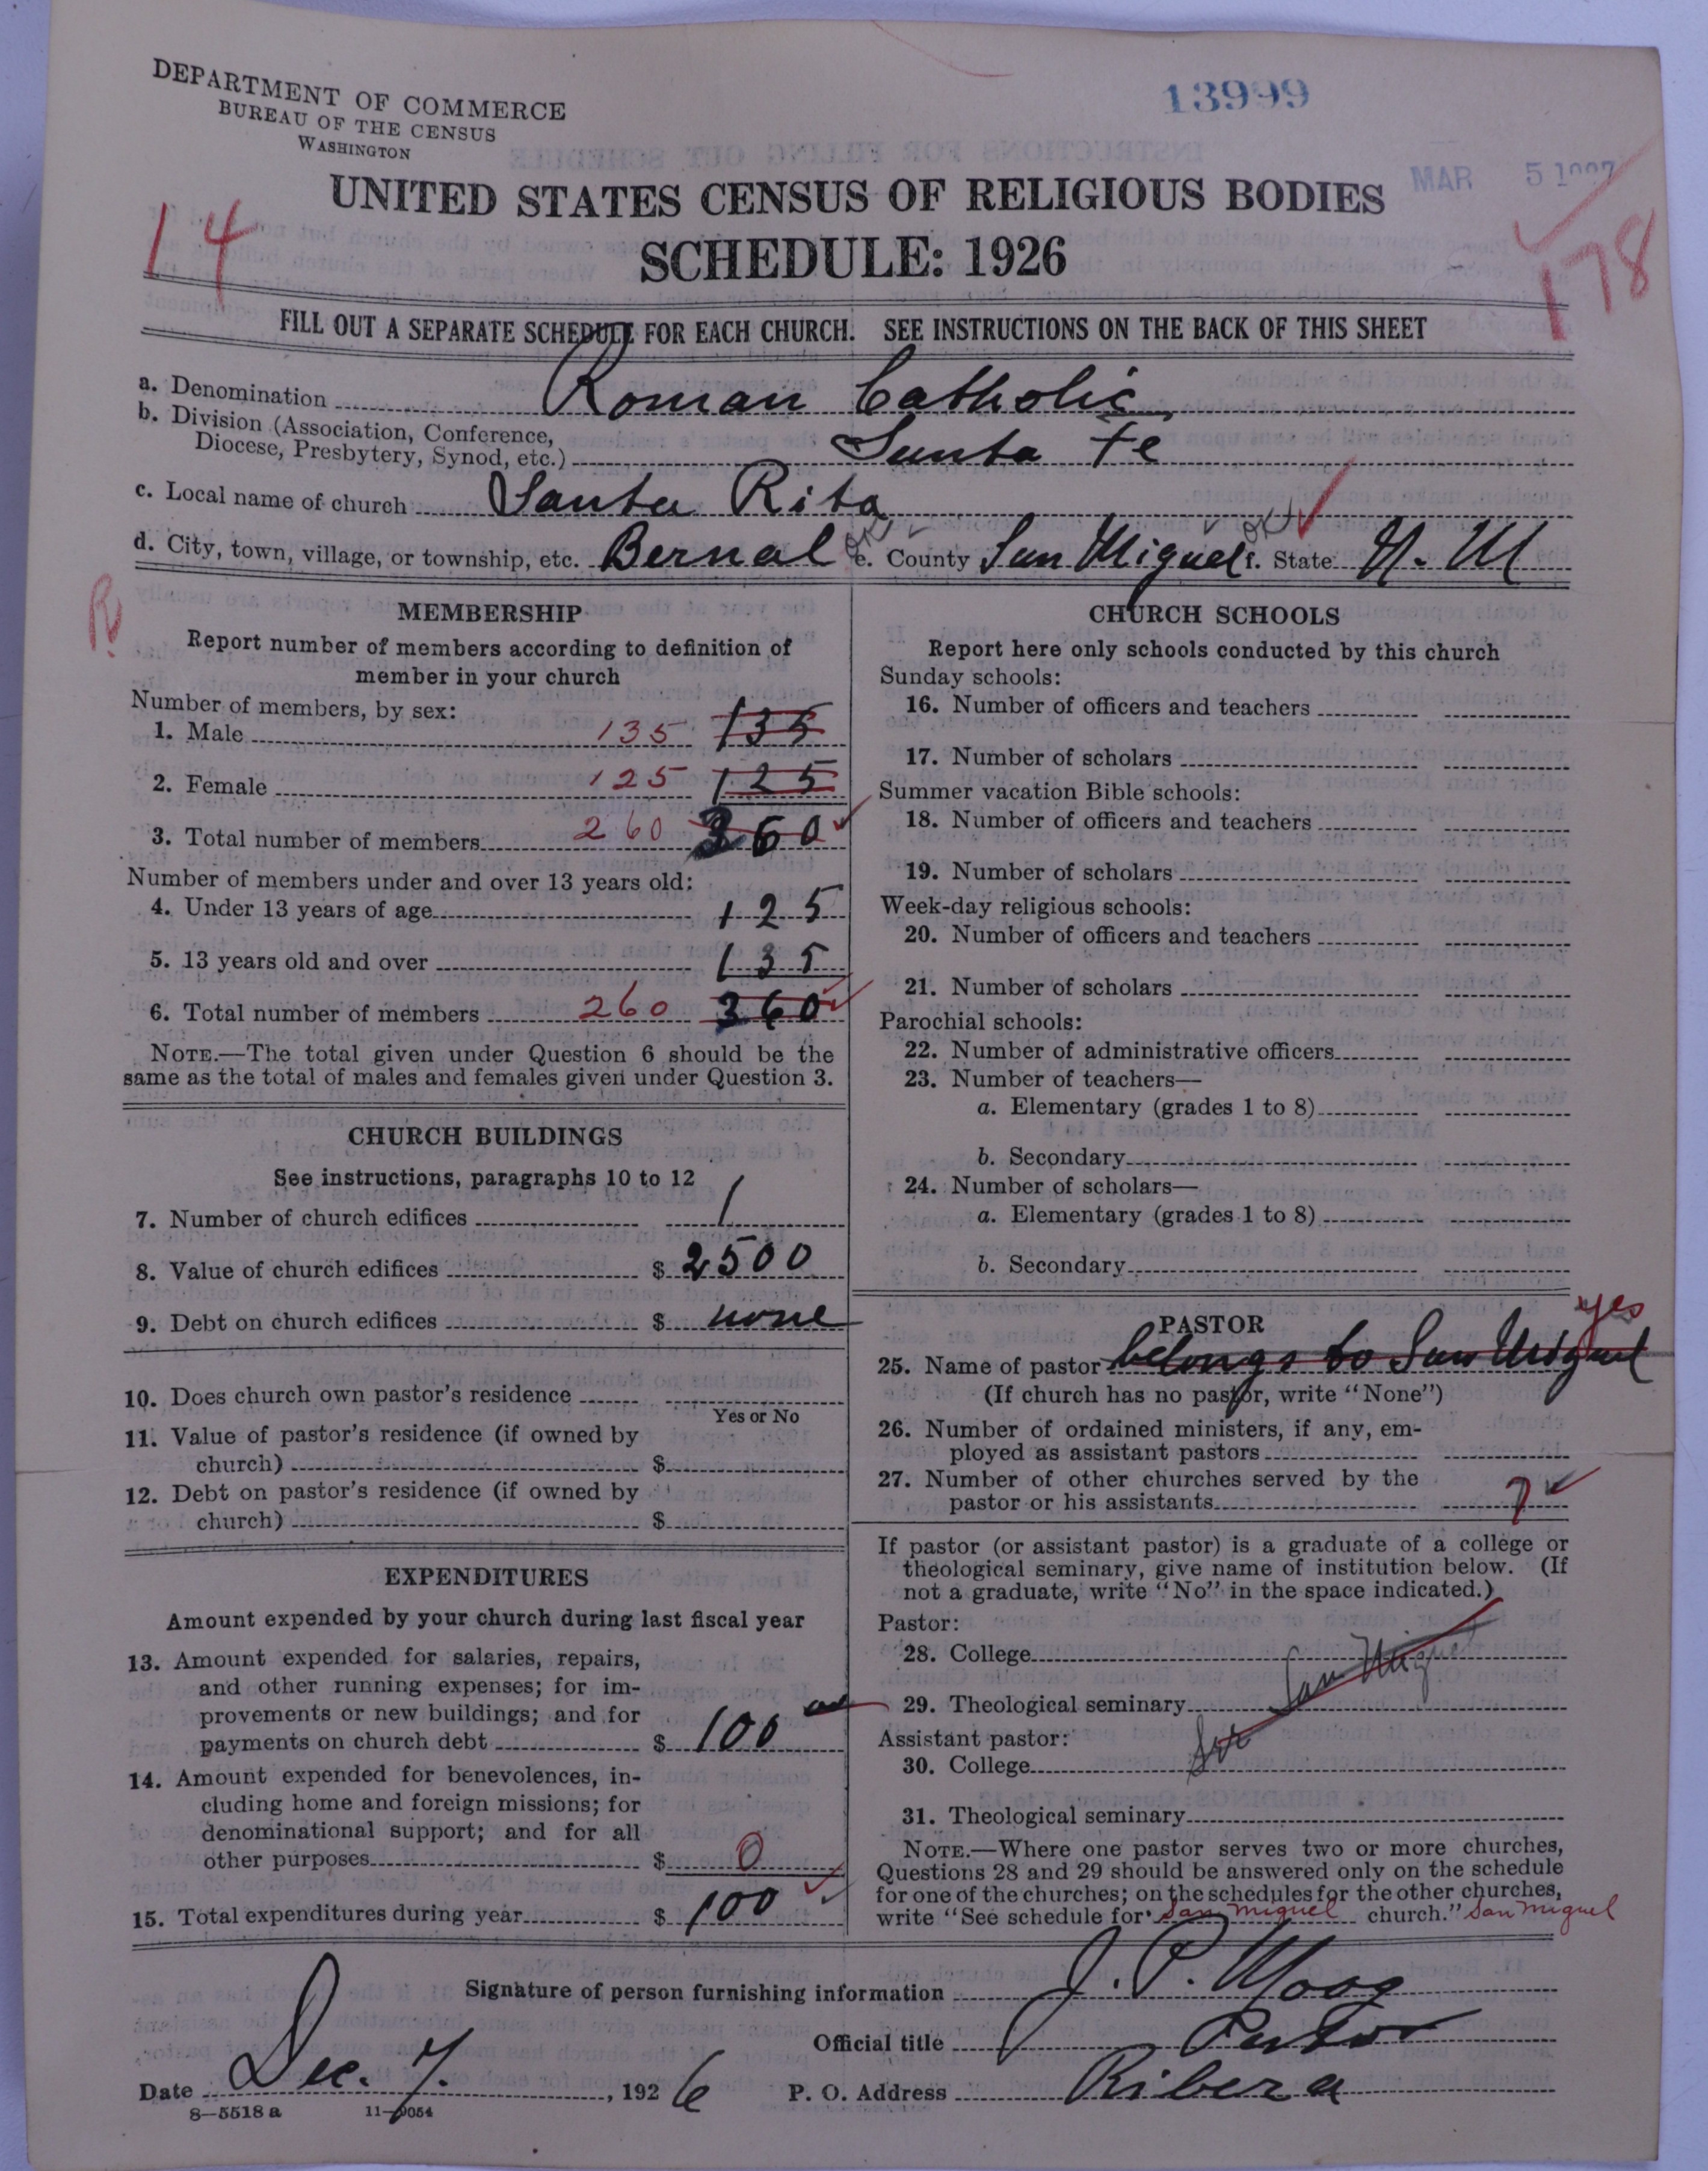 DEPARTMENT OF COMMERCE
BUREAU OF THE CENSUS
WASHINGTON
13999
MAR 5 1927
UNITED STATES CENSUS OF RELIGIOUS BODIES
SCHEDULE: 1926
14
178
FILL OUT A SEPARATE SCHEDULE FOR EACH CHURCH. SEE INSTRUCTIONS ON THE BACK OF THIS SHEET
a. Denomination Roman Catholic
b. Division (Association, Conference,
Diocese, Presbytery, Synod, etc.) Santa Fe
c. Local name of church Santa Rita
d. City, town, village, or township, etc. Bernal e. County San Miguel f. State N. M
R
MEMBERSHIP
Report number of members according to definition of
member in your church
Number of members, by sex:
1. Male 135 135
2. Female 125 125
3. Total number of members 260 360
Number of members under and over 13 years old:
4. Under 13 years of age 125
5. 13 years old and over 135
6. Total number of members 260 360
NOTE.—The total given under Question 6 should be the
same as the total of males and females given under Question 3.
CHURCH BUILDINGS
See instructions, paragraphs 10 to 12
7. Number of church edifices 1
8. Value of church edifices $ 2500
9. Debt on church edifices $ none
10. Does church own pastor's residence
Yes or No
11. Value of pastor's residence (if owned by
church) $
12. Debt on pastor's residence (if owned by
church) $
EXPENDITURES
Amount expended by your church during last fiscal year
13. Amount expended for salaries, repairs,
and other running expenses; for im-
provements or new buildings; and for
payments on church debt $ 100
14. Amount expended for benevolences, in-
cluding home and foreign missions; for
denominational support; and for all
other purposes $ 0
15. Total expenditures during year $ 100
CHURCH SCHOOLS
Report here only schools conducted by this church
Sunday schools:
16. Number of officers and teachers
17. Number of scholars
Summer vacation Bible schools:
18. Number of officers and teachers
19. Number of scholars
Week-day religious schools:
20. Number of officers and teachers
21. Number of scholars
Parochial schools:
22. Number of administrative officers
23. Number of teachers—
a. Elementary (grades 1 to 8)
b. Secondary
24. Number of scholars—
a. Elementary (grades 1 to 8)
b. Secondary
yes
PASTOR
25. Name of pastor belongs to San Miguel
(If church has no pastor, write "None")
26. Number of ordained ministers, if any, em-
ployed as assistant pastors
27. Number of other churches served by the
pastor or his assistants 7
If pastor (or assistant pastor) is a graduate of a college or
theological seminary, give name of institution below. (If
not a graduate, write "No" in the space indicated.)
Pastor:
28. College
29. Theological seminary San Miguel
Assistant pastor:
30. College
31. Theological seminary
NOTE.—Where one pastor serves two or more churches,
Questions 28 and 29 should be answered only on the schedule
for one of the churches; on the schedules for the other churches,
write "See schedule for San Miguel church." San Miguel
Signature of person furnishing information J. P. Moog
Official title Pastor
Date Dec. 7. , 1926 P. O. Address Ribera
8—5518 a 11—9054